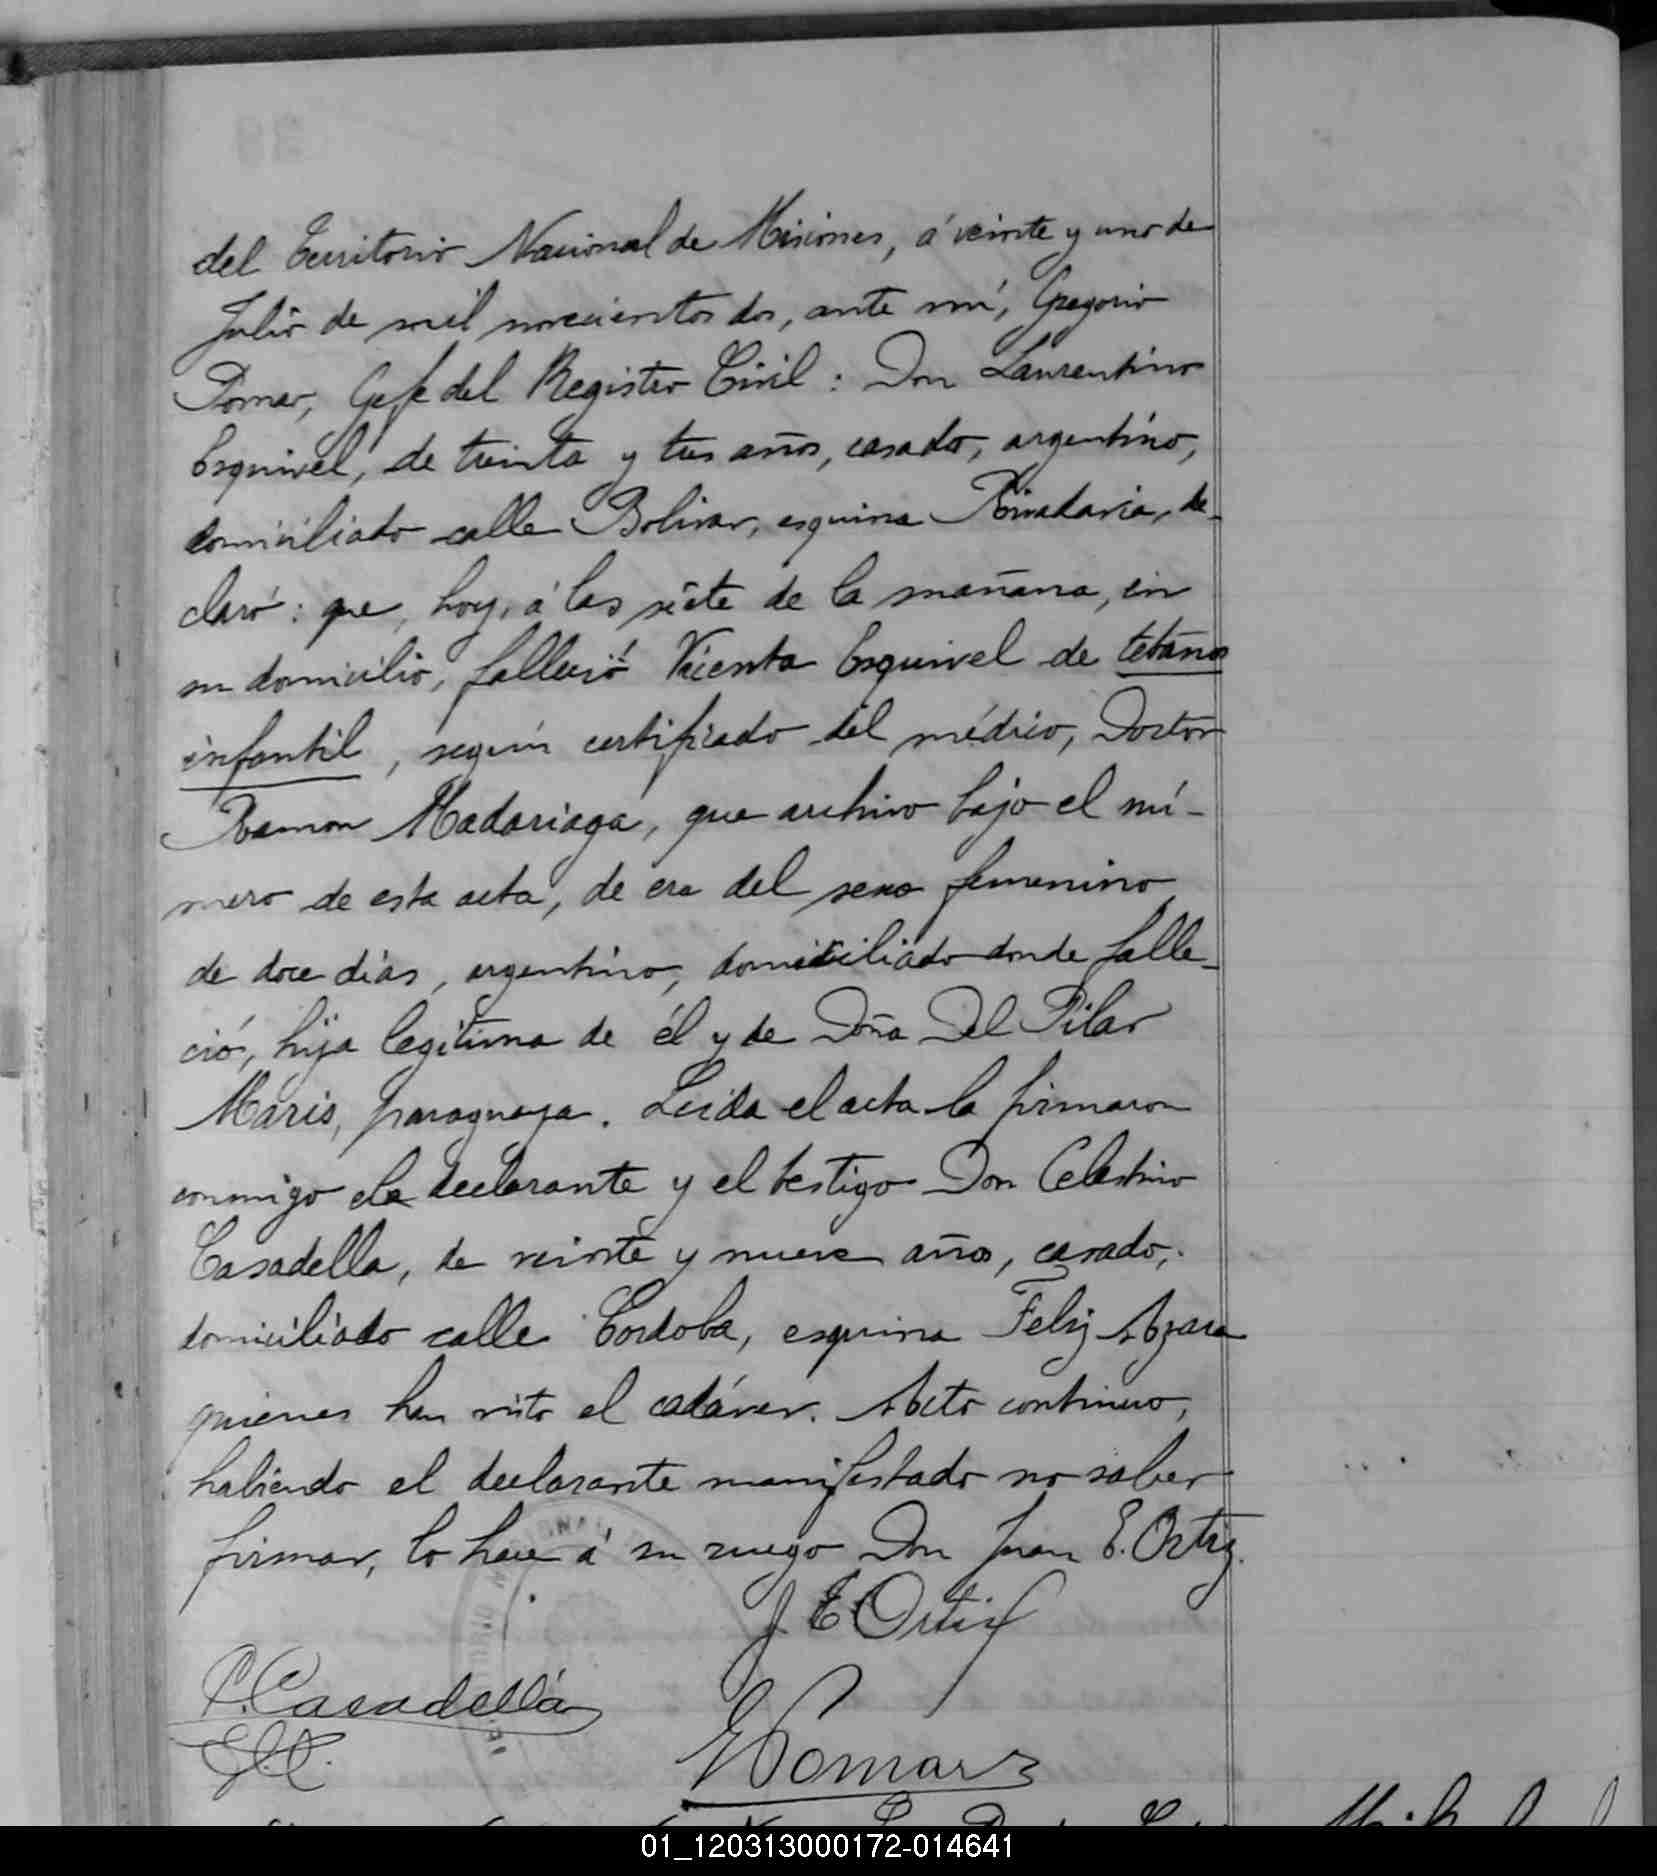 del Territorio Nacional de Misiones, á veinte y uno de
Julio de mil novecientos dos, ante mí, Gregorio
Pomar, Gefe del Registro Civil: Don Laurentino
Esquivel, de treinta y tres años, casado, argentino,
domiciliado calle Bolivar, esquina Rivadavia, de-
claró: que, hoy, á las siete de la mañana, en
su domicilio, falleció Vicenta Esquivel de tétano
infantil, según certificado del médico, Doctor
Ramon Madariaga, que archivo bajo el nú-
mero de esta acta, de era del sexo femenino,
de doce días, argentino, domiciliado donde falle-
ció, hija legítima de él y de Doña Del Pilar
Maris, paraguaya. Leida el acta la firmaron
conmigo el declarante y el testigo Don Celestino
Casadella, de veinte y nueve años, casado,
domiciliado calle Cordoba, esquina Feliz Azara
quienes han visto el cadáver. Acto continuo,
habiendo el declarante manifestado no saber
firmar, lo hace á su ruego Don Juan E. Ortiz.
J. E. Ortiz
C. Casadellá
G Pomar
01_120313000172-014641